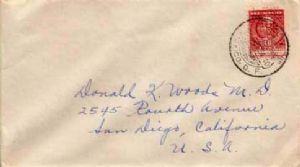 Donald K. Woods M.D
2595 Fourth Avenue
San Diego, California
U.S.A.